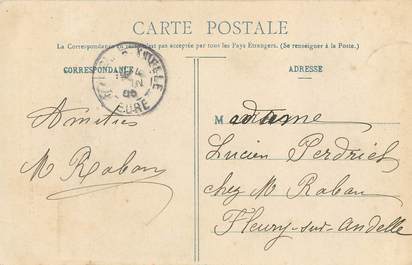 CARTE POSTALE
La Correspondance au recto n'est pas acceptée par tous les Pays Etrangers. (Se renseigner à la Poste.)
CORRESPONDANCE
ADRESSE
EURE
Amitiés
M Raban
Madame
Lucien Perdriel
chez M Raban
Fleury-sur-Andelle